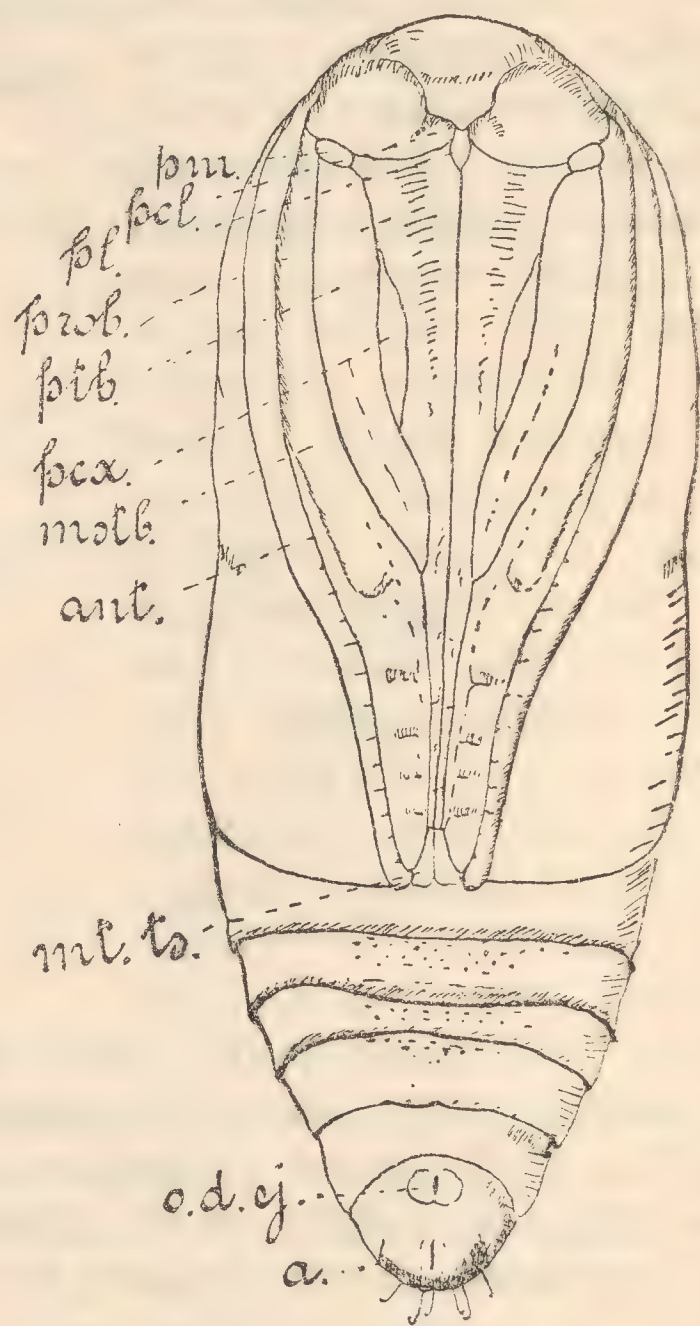 pm.
pcl.
pl.
prob.
ptb.
pcx.
mstb.
ant.
mt. ts.
o.d.ej.
a.